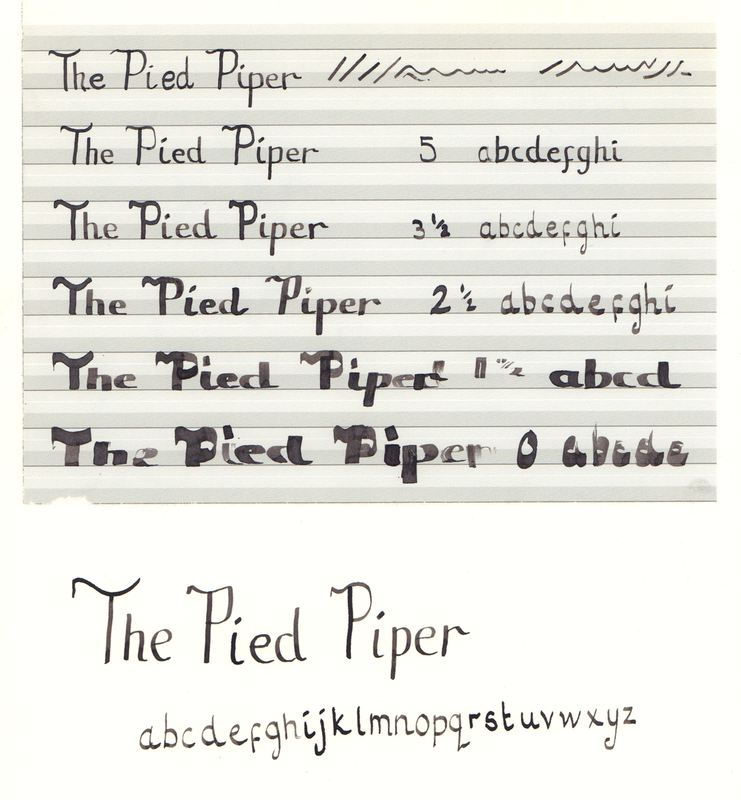 The Pied Piper
The Pied Piper 5 abcdefghi
The Pied Piper 3½ abcdefghi
The Pied Piper 2½ abcdefghi
The Pied Piper 1½ abcd
The Pied Piper 0 abcde
The Pied Piper
abcdefghijklmnopqrstuvwxyz